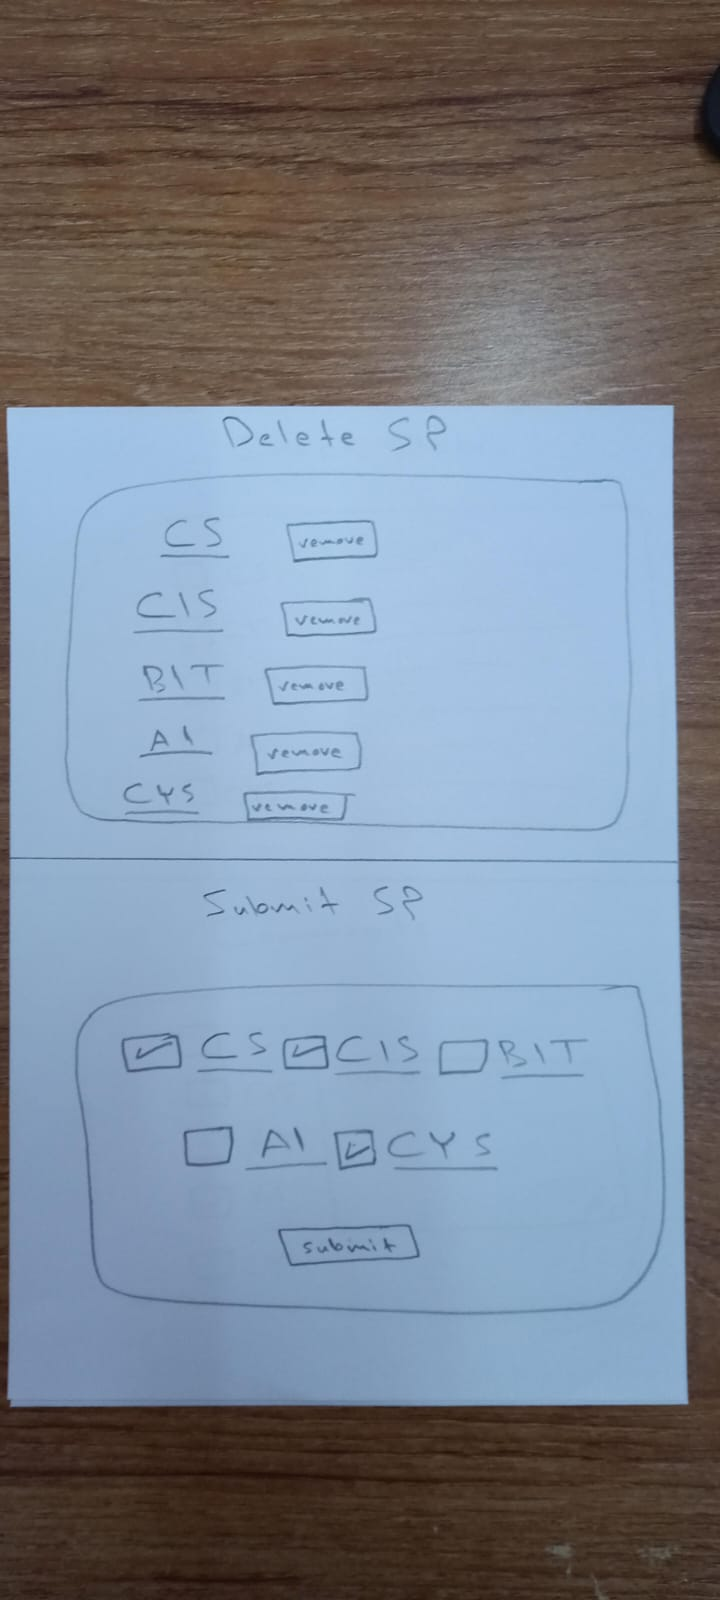 Delete SP
CS remove
CIS remove
BIT remove
AI remove
CYS remove
Submit SP
CS CIS BIT
AI CYS
submit